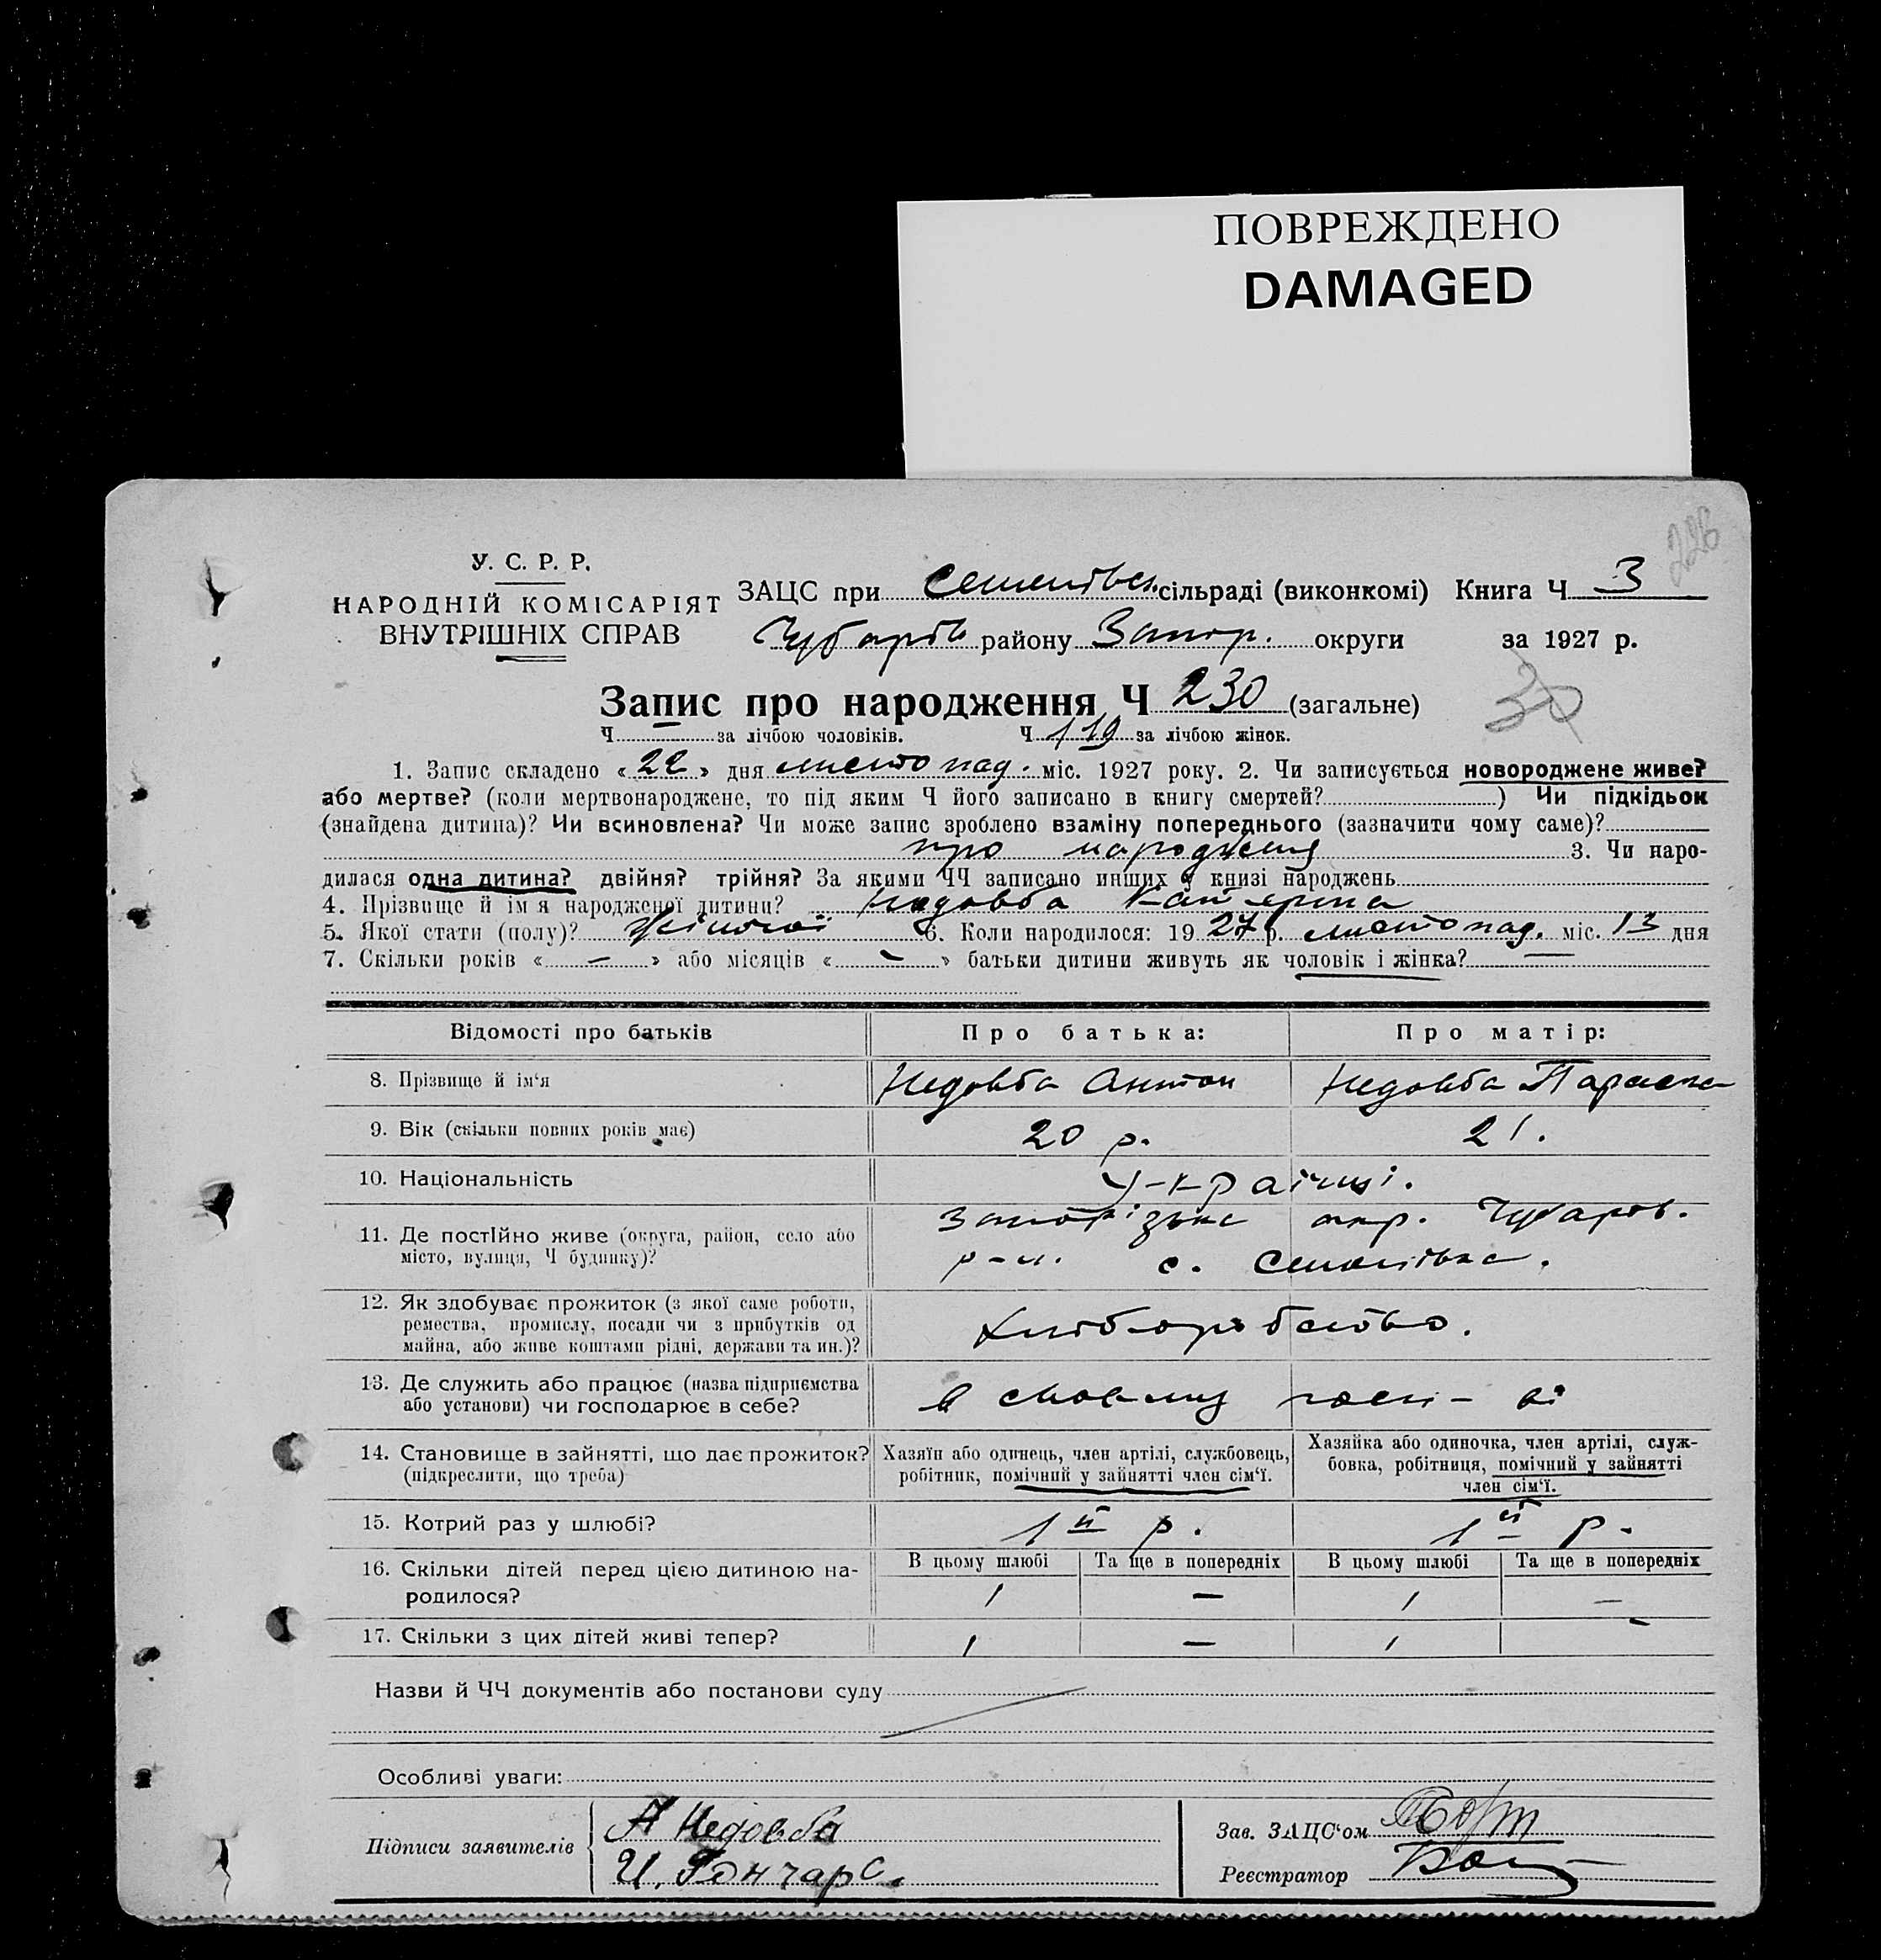 ПОВРЕЖДЕНО
DAMAGED
226
У. С. Р. Р.
НАРОДНІЙ КОМІСАРІЯТ
ВНУТРІШНІХ СПРАВ
ЗАЦС при Семенівськ. сільраді (виконкомі) Книга Ч 3
Чубарів району Запор. округи за 1927 р.
Запис про народження Ч 230 (загальне)
30
Ч — за лічбою чоловіків. Ч 119 за лічбою жінок.
1. Запис складено « 22 » дня листопад. міс. 1927 року. 2. Чи записується новороджене живе?
або мертве? (коли мертвонароджене, то під яким Ч його записано в книгу смертей? ) Чи підкідьок
(знайдена дитина)? Чи всиновлена? Чи може запис зроблено взаміну попереднього (зазначити чому саме)?
про народженя 3. Чи наро-
дилася одна дитина? двійня? трійня? За якими ЧЧ записано инших у книзі народжень
4. Прізвище й ім я народженої дитини? Недовба Катерина
5. Якої стати (полу)? Жіночої 6. Коли народилося: 19 27 р. листопад. міс. 13 дня
7. Скільки років « — » або місяців « — » батьки дитини живуть як чоловік і жінка? —
Відомості про батьків Про батька: Про матір:
8. Прізвище й ім‘я Недовба Антон Недовба Параска
9. Вік (скільки повних років має) 20 р. 21.
10. Національність Українці.
11. Де постійно живе (округа, район, село або Запорізька окр. Чубаров.
місто, вулиця, Ч будинку)? р-н. с. Семенівка.
12. Як здобуває прожиток (з якої саме роботи,
ремества, промислу, посади чи з прибутків од Хліборобство.
майна, або живе коштами рідні, держави та ин.)?
13. Де служить або працює (назва підприємства
або установи) чи господарює в себе? в своєму госп-ві
14. Становище в зайнятті, що дає прожиток? (підкреслити, що треба)
Хазяїн або одинець, член артілі, службовець,
робітник, помічний у зайнятті член сім‘ї.
Хазяйка або одиночка, член артілі, служ-
бовка, робітниця, помічний у зайнятті
член сім‘ї.
15. Котрий раз у шлюбі? 1й р. 1й р.
16. Скільки дітей перед цією дитиною на- В цьому шлюбі Та ще в попередніх В цьому шлюбі Та ще в попередніх
родилося? 1 — 1 —
17. Скільки з цих дітей живі тепер? 1 — 1 -
Назви й ЧЧ документів або постанови суду
Особливі уваги:
Підписи заявителів
А Недовба
И. Гончарс.
Зав. ЗАЦС‘ом
Реєстратор